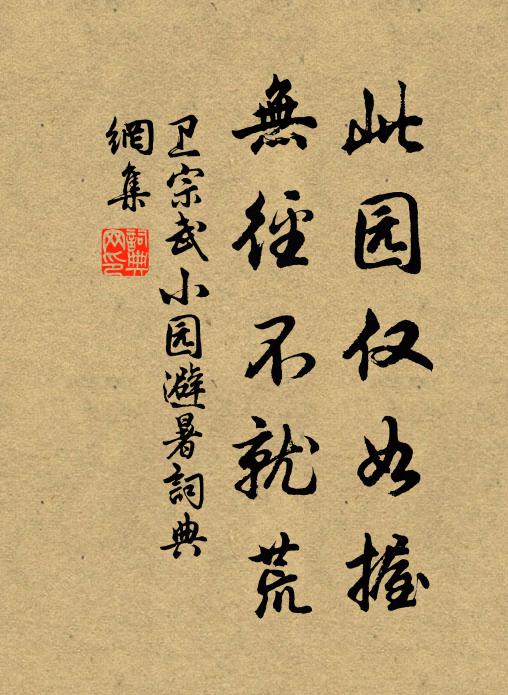 此园仅如握
無径不就荒
卫宗武小园避暑詞典
網集
詞典
网印